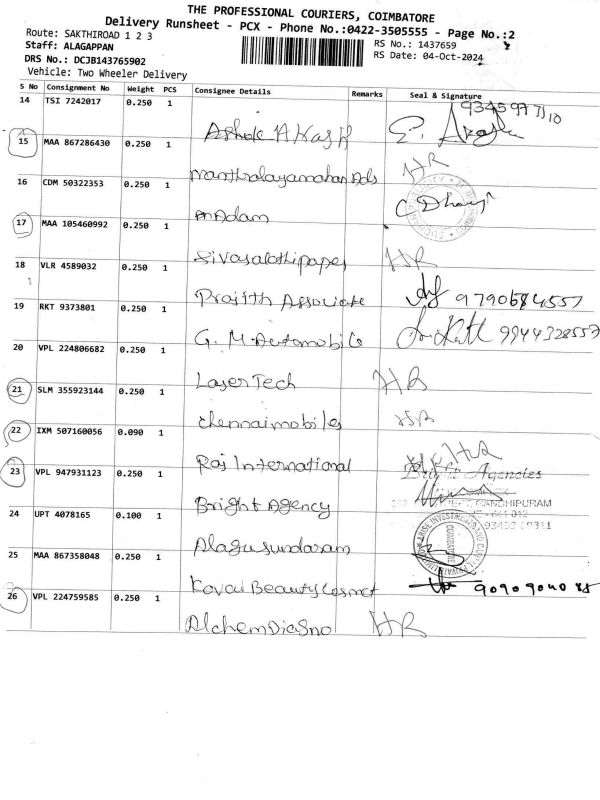 THE PROFESSIONAL COURIERS, COIMBATORE
Delivery Runsheet - PCX - Phone No.:0422-3505555 - Page No.:2
Route: SAKTHIROAD 1 2 3
Staff: ALAGAPPAN
RS No.: 1437659
DRS No.: DCJB143765902
RS Date: 04-Oct-2024
Vehicle: Two Wheeler Delivery
S No Consignment No Weight PCS Consignee Details Remarks Seal & Signature
14 TSI 7242017 0.250 1 Ashok Akash
15 MAA 867286430 0.250 1 Manthralayamohan Ads HR
16 CDM 50322353 0.250 1 Adam
17 MAA 105460992 0.250 1 Sivasakthipaper HR
18 VLR 4589032 0.250 1 Prajith Associate 9790684557
19 RKT 9373801 0.250 1 G. M. Automobile 9944328557
20 VPL 224806682 0.250 1 LaserTech HR
21 SLM 355923144 0.250 1 chennaimobiles HR
22 IXM 507160056 0.090 1 Raj International HR
23 VPL 947931123 0.250 1 Bright Agency Bright Agencies
GANDHIPURAM
24 UPT 4078165 0.100 1 Alagusundaram
25 MAA 867358048 0.250 1 Kovai Beauty Cosmet
26 VPL 224759585 0.250 1 AlchemDiagno HR